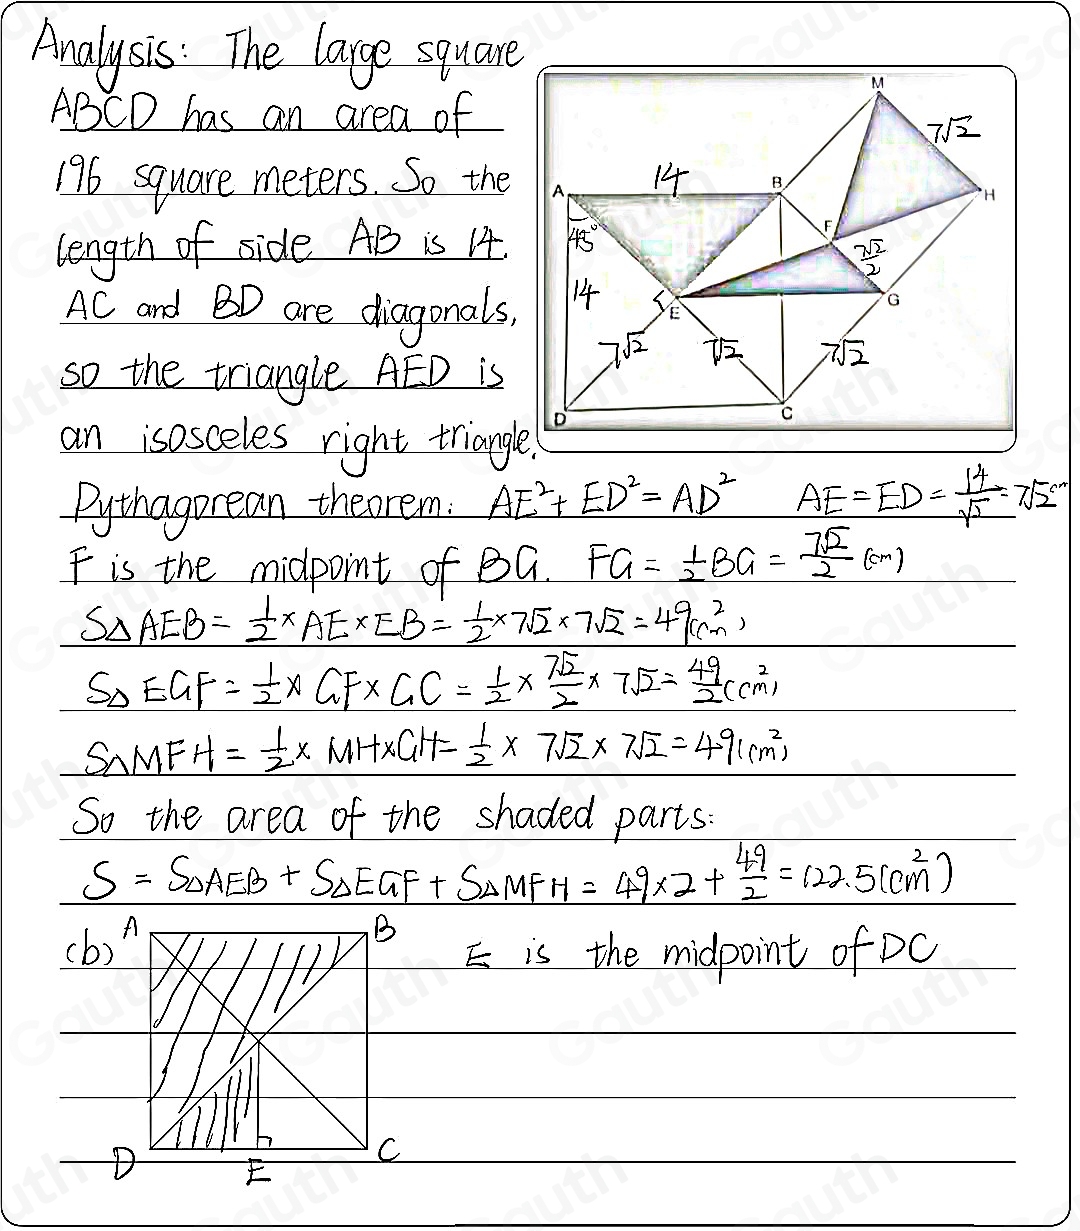 Analysis: The large square
ABCD has an area of
196 square meters. So the
length of side AB is 14.
AC and BD are diagonals,
so the triangle AED is
an isosceles right triangle.
M
7√2
14
A
B
H
F
45°
7√2/2
14
E
G
7√2
7√2
7√2
D
C
Pythagorean theorem: AE²+ ED²= AD² AE=ED= 14/√2 =7√2 cm
F is the midpoint of BG. FG= 1/2 BG = 7√2/2 (cm)
S△AEB= 1/2 ×AE×EB= 1/2 ×7√2×7√2=49(cm²)
S△EGF= 1/2 × GF×GC = 1/2 × 7√2/2 × 7√2= 49/2 (cm²)
S△MFH= 1/2 × MH×GH= 1/2 × 7√2×7√2=49(cm²)
So the area of the shaded parts:
S = S△AEB + S△EGF + S△MFH = 49×2+ 49/2 =122.5(cm²)
(b) A B E is the midpoint of DC
D E C